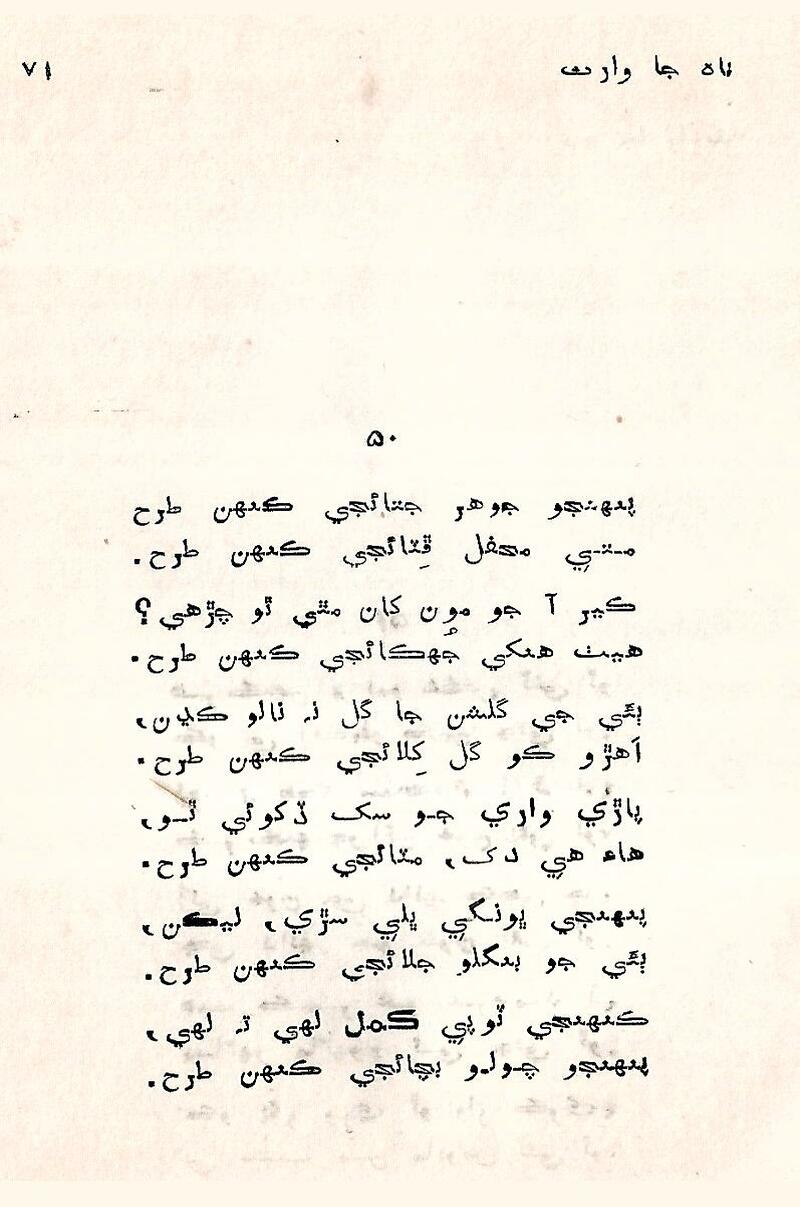 باه جا وارث ٧١
٥٠
پنهنجو جوهر جتائجي ڪنهن طرح
متي محفل ڦِٽائجي ڪنهن طرح.
ڪير آ جو مون کان مٿي ٿو چڙهي؟
هيٺ هنکي جُهڪائجي ڪنهن طرح.
ٻئي جي گلشن جا گل نہ نالو ڪڍن،
اَهڙو ڪو گل کِلائجي ڪنهن طرح.
پاڙي واري جو سک ڏکوئي ٿو،
هاءِ هي دک، مٽائجي ڪنهن طرح.
پنهنجي ڀونگي ڀلي سڙي، ليڪن،
ٻئي جو بنگلو جلائجي ڪنهن طرح.
ڪنهنجي ٽوپي ڪمل لهي تہ لهي،
پنهنجو چولو بچائجي ڪنهن طرح.